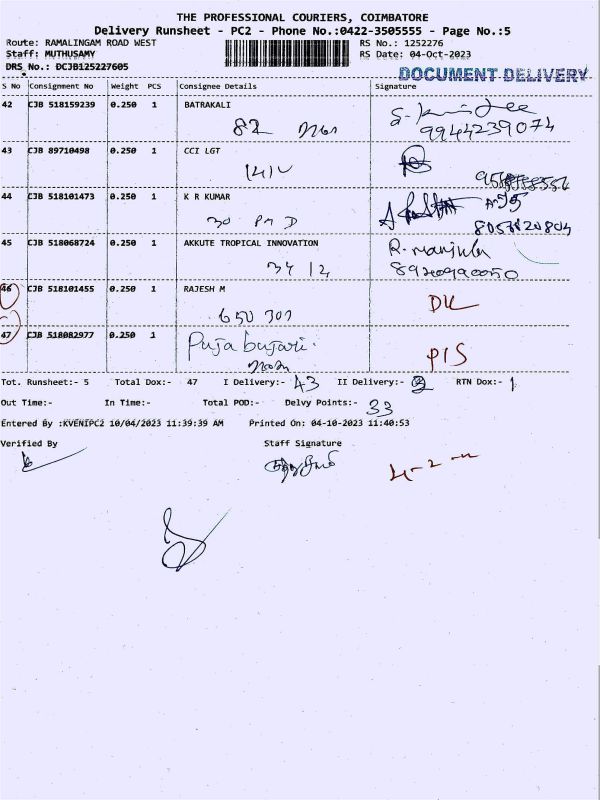 THE PROFESSIONAL COURIERS, COIMBATORE
Delivery Runsheet - PC2 - Phone No.:0422-3505555 - Page No.:5
Route: RAMALINGAM ROAD WEST RS No.: 1252276
Staff: MUTHUSAMY RS Date: 04-Oct-2023
DRS No.: DCJB125227605 DOCUMENT DELIVERY
S No Consignment No Weight PCS Consignee Details Signature
42 CJB 518159239 0.250 1 BATRAKALI
82
9944239074
43 CJB 89710498 0.250 1 CCI LGT
44 CJB 518101473 0.250 1 K R KUMAR
30
45 CJB 518068724 0.250 1 AKKUTE TROPICAL INNOVATION R. manjula
34 12
46 CJB 518101455 0.250 1 RAJESH M DL
650 307
47 CJB 518082977 0.250 1 Puja bujari. PIS
Tot. Runsheet:- 5 Total Dox:- 47 I Delivery:- 43 II Delivery:- RTN Dox:- 1
Out Time:- In Time:- Total POD:- Delvy Points:- 33
Entered By :KVENIPC2 10/04/2023 11:39:39 AM Printed On: 04-10-2023 11:40:53
Verified By Staff Signature